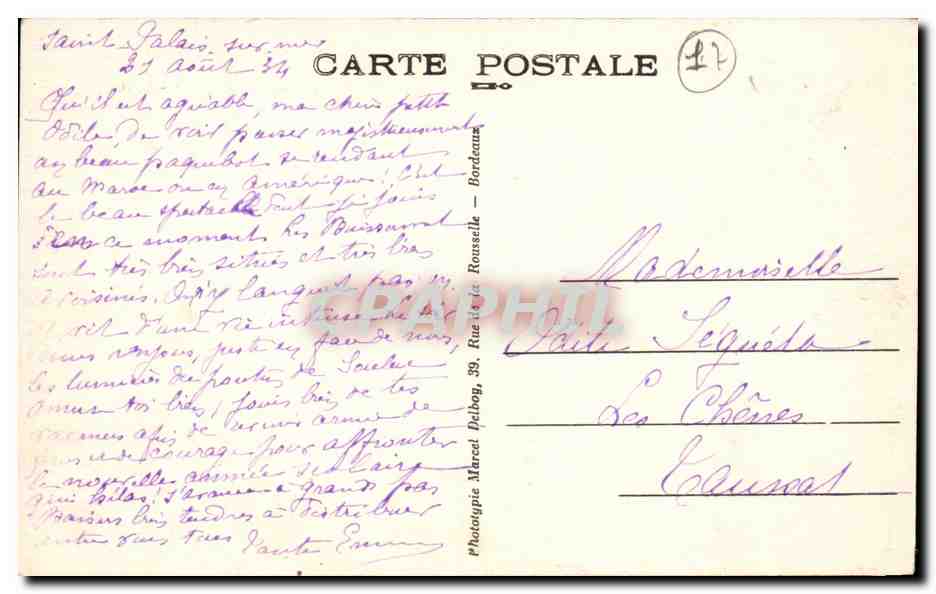 Saint-Palais-sur-mer
21 août 34
Qu'il est agréable, ma chère petite
Odile, de voir passer majestueusement
un beau paquebot se rendant
au Maroc ou en Amérique! C'est
le beau spectacle dont je jouis
en ce moment. Les
sont très bien situés et très bien
voisinés.
vit d'une vie intense
nous voyons, juste en face de nous,
les lumières du de Soulac
Amuse toi bien, jouis bien de tes
vacances afin de revenir armée de
de courage pour affronter
la nouvelle année scolaire
qui hélas! s'avance à grands pas
Baisers bien tendres à distribuer
entre vous tous Tante
CARTE POSTALE
17
Phototypie Marcel Delboy, 39, Rue de la Rousselle — Bordeaux
Mademoiselle
Odile Séguéla
Les Chênes
Taussat
CPAPHIL